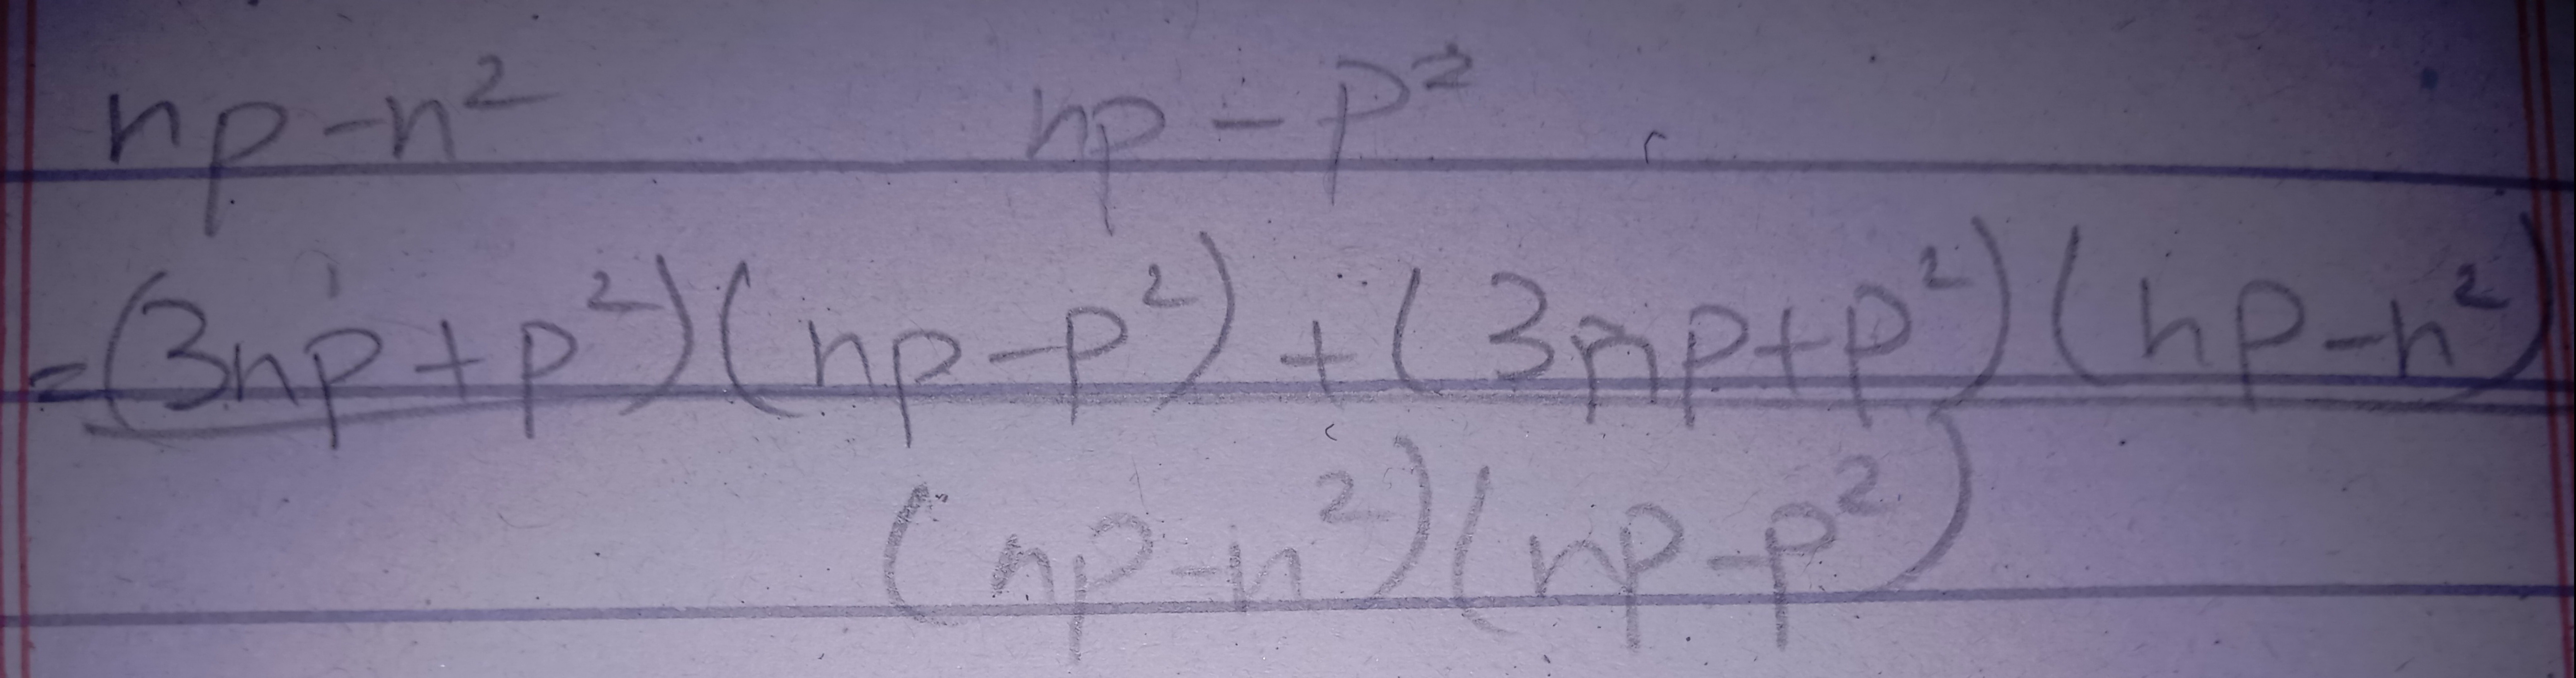 np-n² np-p²
=(3np+p²)(np-p²)+(3np+p²)(np-n²)
(np-n²)(np-p²)